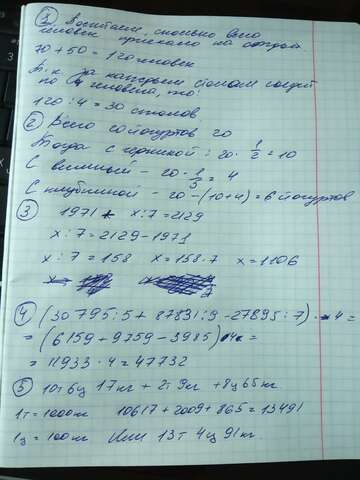 ① Посчитаем, сколько всего
человек приехало на отдых
70 + 50 = 120 человек
Т.к. за каждым столом сидят
по 4 человека, то:
120 : 4 = 30 столов
② Всего йогуртов 20
Тогда с черникой: 20 · 1/2 = 10
С вишней - 20 · 1/5 = 4
С клубникой - 20 - (10+4) = 6 йогуртов
③ 1971 + x : 7 = 2129
x : 7 = 2129 - 1971
x : 7 = 158 x = 158 · 7 x = 1106
④ (30795 : 5 + 87831 : 9 - 27895 : 7) · 4 =
= (6159 + 9759 - 3985) · 4 =
= 11933 · 4 = 47732
⑤ 10т 6ц 17кг + 2т 9кг + 8ц 65кг
1т = 1000кг 10617 + 2009 + 865 = 13491
1ц = 100кг Или 13т 4ц 91кг.